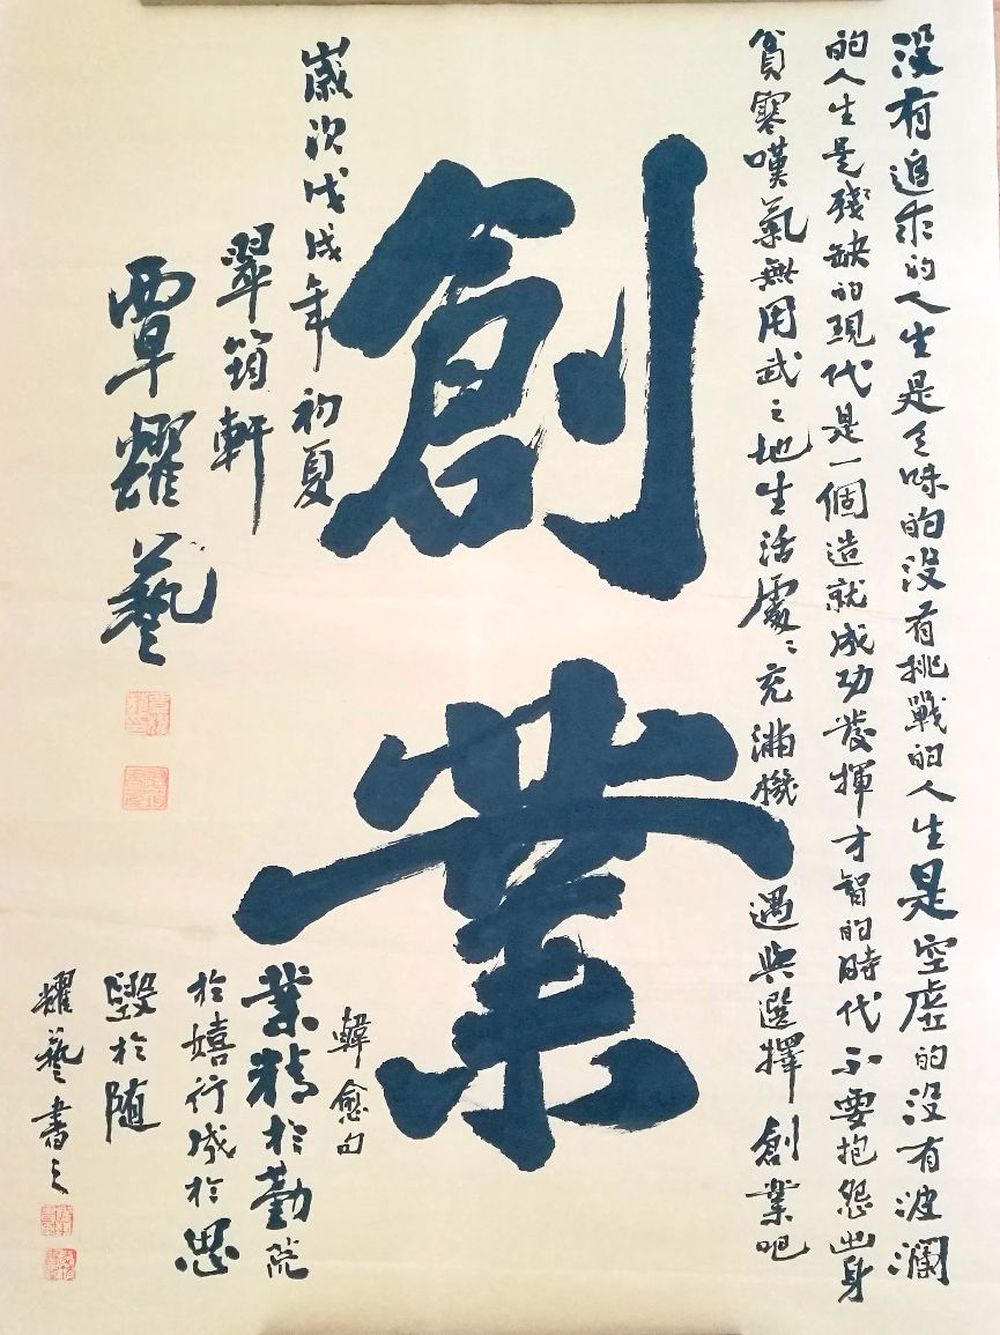 創業
没有追求的人生是乏味的没有挑戰的人生是空虛的没有波瀾
的人生是殘缺的現代是一個造就成功發揮才智的時代不要抱怨出身
貧寒嘆氣無用武之地生活處處充滿機遇與選擇創業吧
歲次戊戌年初夏
翠筠軒
覃耀藝
韓愈句
業精於勤荒
於嬉行成於思
毀於随
耀藝書之